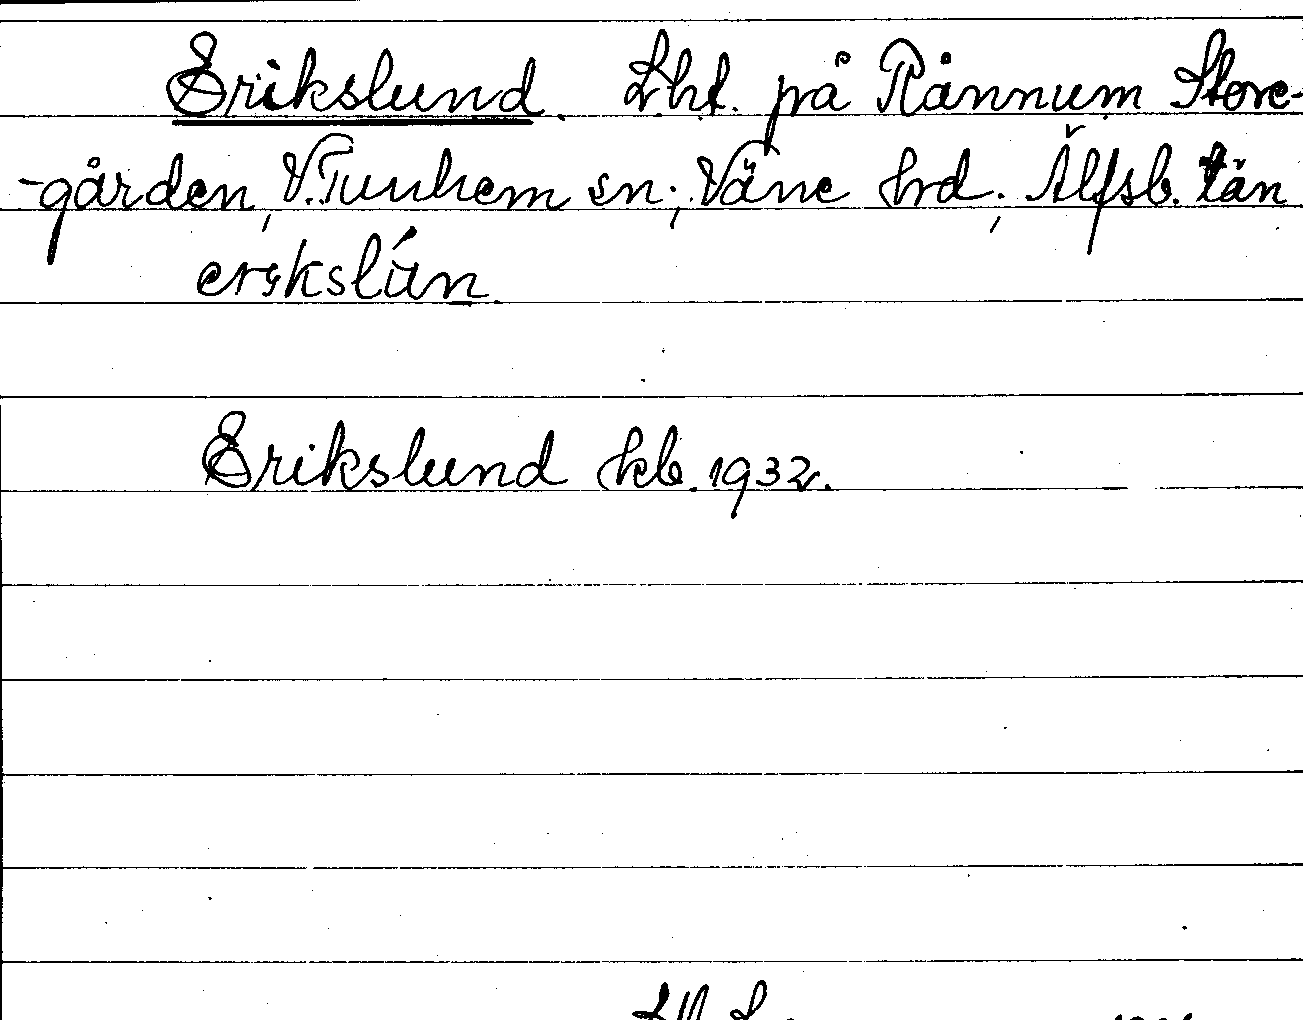 Erikslund. Lht. på Rånnum Store-
-gården, V. Tunhem sn; Väne hrd; Älfsb. län
erikslún.
Erikslund kb. 1932.